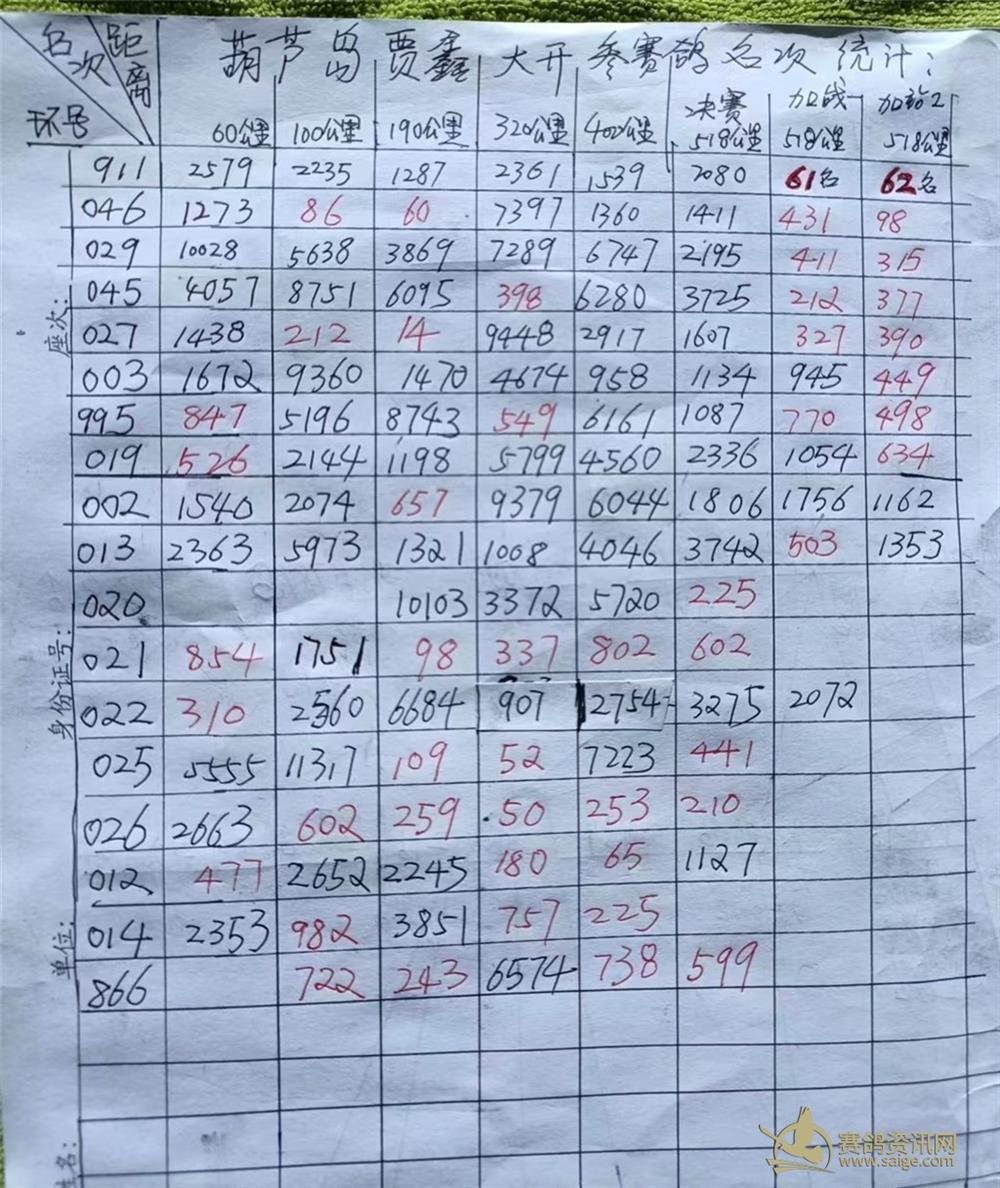 名次 距离 环号
葫芦岛 贾鑫 大开 参赛鸽名次 统计:
60公里 100公里 190公里 320公里 400公里 决赛518公里 加战一518公里 加站2 518公里
911 2579 2235 1287 2361 1539 2080 61名 62名
046 1273 86 60 7397 1360 1411 431 98
029 10028 5638 3869 7289 6747 2195 411 315
045 4057 8751 6095 398 6280 3725 212 377
027 1438 212 14 9448 2917 1607 327 390
003 1672 9360 1470 4674 958 1134 945 449
995 847 5196 8743 549 6161 1087 770 498
019 526 2144 1198 5799 4560 2336 1054 634
002 1540 2074 657 9379 6044 1806 1756 1162
013 2363 5973 1321 1008 4046 3742 503 1353
020 10103 3372 5720 225
021 854 1751 98 337 802 602
022 310 2560 6684 907 2754 3275 2072
025 5555 11317 109 52 7223 441
026 2663 602 259 50 253 210
012 477 2652 2245 180 65 1127
014 2353 982 3851 757 225
866 722 243 6574 738 599
座次:
身份证号:
单位:
名:
赛鸽资讯网
www.saige.com